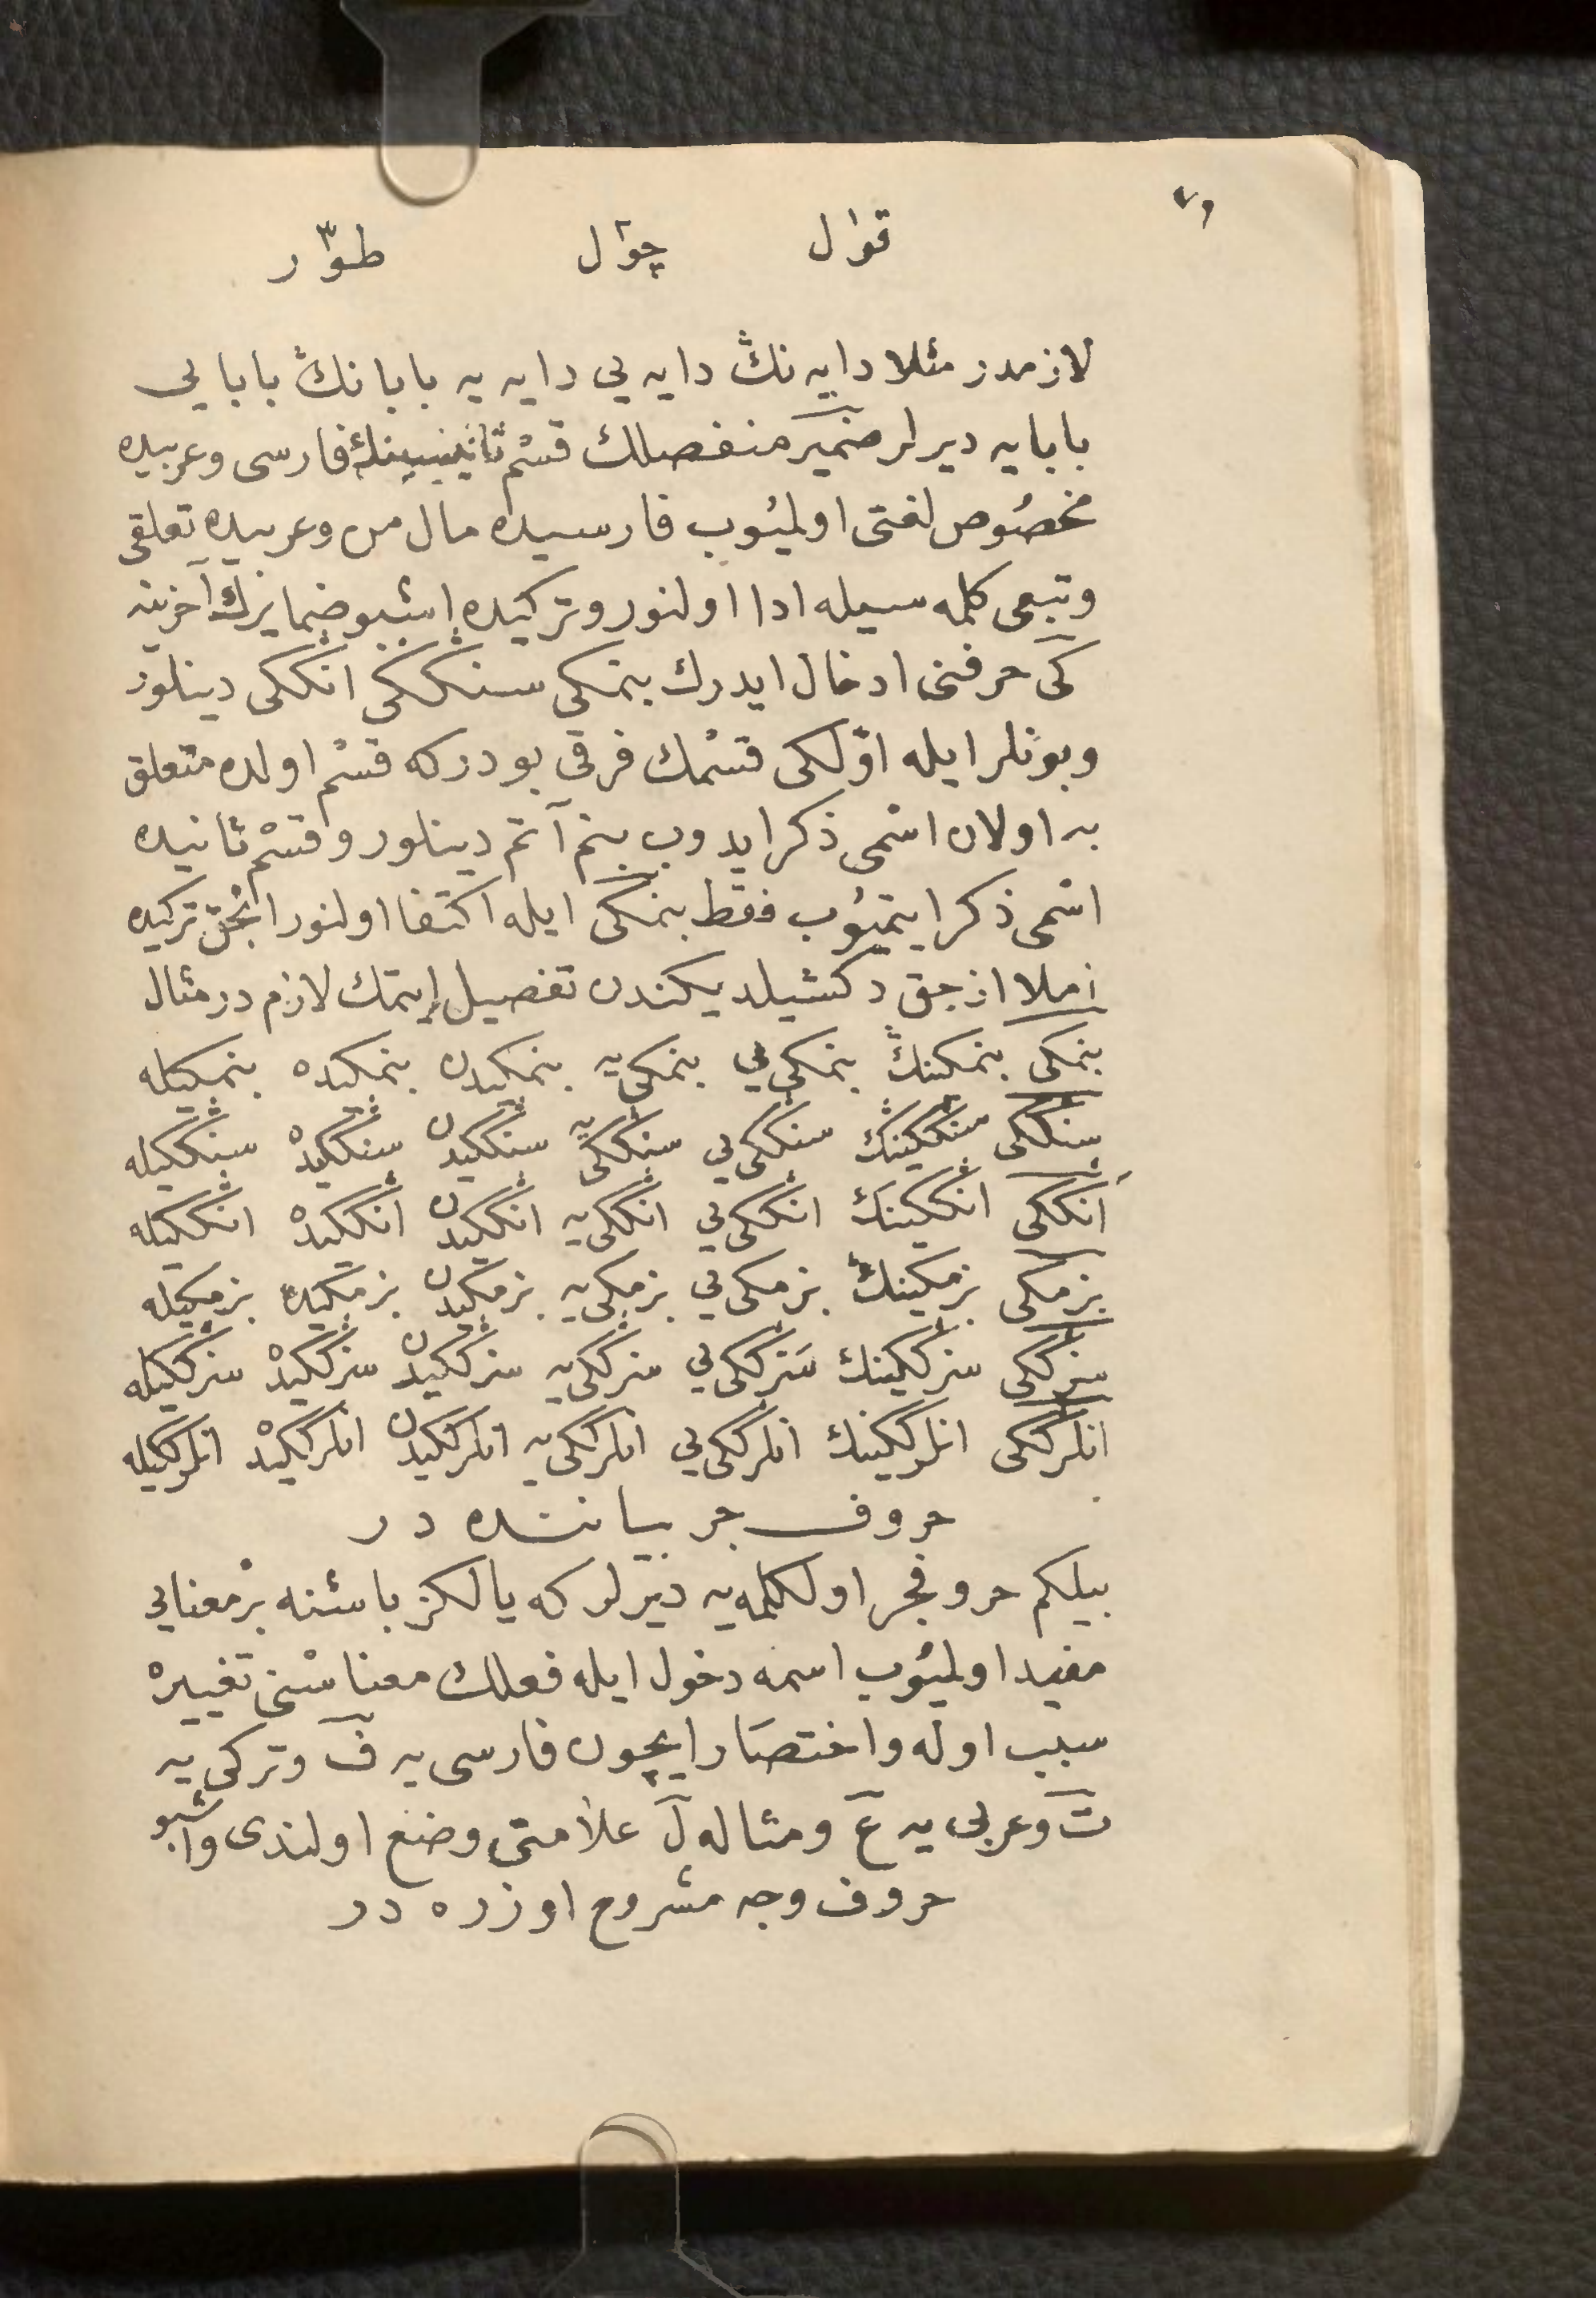 قوٰل چوٰل طوّر
لازمدر مثلا دایه نڭ دایه یی دایه یه بابا نڭ بابا یی
بابا یه دیرلر ضمیر منفصلك قسم ثانیسینڭ فارسی و عربیده
مخصُوص لغتی اولمیُوب فارسیده مال من و عربیده تعلقی
و تبعی کلمه سیله ادا اولنور و ترکیده اشبو ضمایرك آخرینه
کی حرفنی ادخال ایدرك بنمکی سنڭکی انڭکی دینلور
و بونلر ایله اوّلکی قسمك فرقی بودرکه قسم اولده متعلق
به اولان اسمی ذکر ایدوب بنم آتم دینلور و قسم ثانیده
اسمی ذکر ایتمیُوب فقط بنمکی ایله اکتفا اولنور انجق ترکیده
املا ازجق دکشیلدیکندن تفصیل ایتمك لازم در مثال
بنمکی بنمکینڭ بنمکی یی بنمکی یه بنمکیدن بنمکیده بنمکیله
سنڭکی سنڭکینڭ سنڭکی یی سنڭکی یه سنڭکیدن سنڭکیده سنڭکیله
انڭکی انڭکینڭ انڭکی یی انڭکی یه انڭکیدن انڭکیده انڭکیله
بزمکی بزمکینڭ بزمکی یی بزمکی یه بزمکیدن بزمکیده بزمکیله
سزڭکی سزڭکینڭ سزڭکی یی سزڭکی یه سزڭکیدن سزڭکیده سزڭکیله
انلرڭکی انلرڭکینڭ انلرڭکی یی انلرڭکی یه انلرڭکیدن انلرڭکیده انلرڭکیله
حروف جر بیاننده در
بیلکم حروفجر اولکلمه یه دیرلر که یالکز باشنه بر معنایی
مفید اولمیُوب اسمه دخول ایله فعلك معناسنی تغییره
سبب اوله و اختصار ایچون فارسی یه فَ و ترکی یه
تَ و عربی یه عَ و مثاله لَ علامتی وضع اولندی و اشبو
حروف وجه مشروح اوزره در